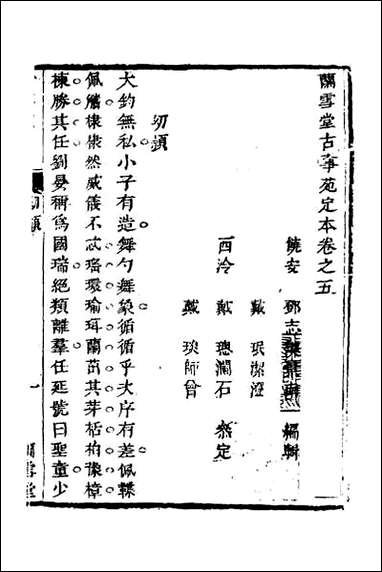 蘭雪堂古事苑定本卷之五
饒安 鄧志謨 編輯
戴 珉潔澄
西泠 戴 璁瀾石 叅定
戴 琅師曾
幼頴
大鈞無私小子有造舞勺舞象循循乎大序有差佩韘
佩觿棣棣然威儀不忒瑤環瑜珥蘭茁其芽栝柏豫樟
棟勝其任劉晏稱爲國瑞絕類離羣任延號曰聖童少
幼頴
一
蘭雪堂